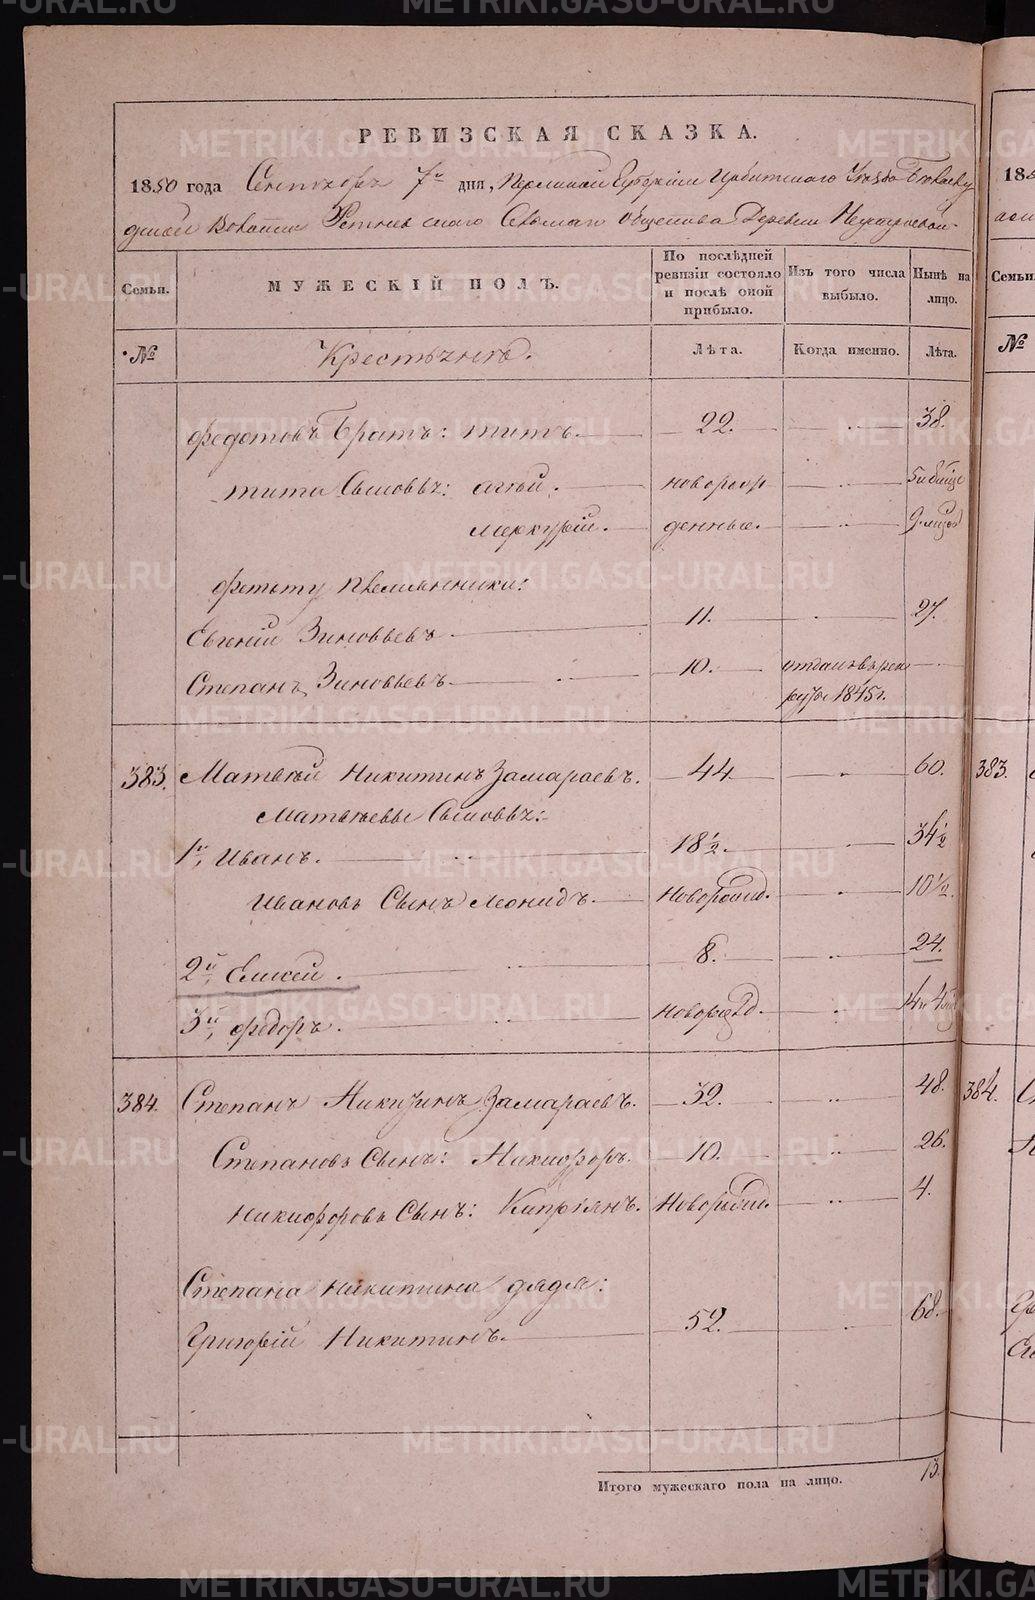 РЕВИЗСКАЯ СКАЗКА.
1850 года Сентября 7го дня, Пермской Губернии Ирбитского Уезда
Волости Сельскаго общества Деревни
Семьи. МУЖЕСКІЙ ПОЛЪ. По послѣдней ревизіи состояло и послѣ оной прибыло. Изъ того числа выбыло. Нынѣ на лицо.
№ Крестьянъ. Лѣта. Когда именно. Лѣта.
Федотовъ Братъ: Титъ. 22. 38.
Тита Сыновья: Агѣй. новорож
Меркурій. денные.
племянники:
Евгеній Зиновьевъ 11. 27.
Степанъ Зиновьевъ 10. отданъ въ рек
руты 1845 г.
383. Матвѣй Никитинъ Замараевъ. 44 60.
Матвѣевы Сыновья:
1й, Иванъ. 18½. 34½
Ивановъ Сынъ Леонидъ. Новорожд. 10½.
2й, Елисей. 8. 24.
3й, Федоръ. новорожд.
384. Степанъ Никитинъ Замараевъ. 32. 48.
Степановъ Сынъ: Никифоръ. 10. 26.
Никифоровъ Сынъ: Кипріянъ. Новорожд. 4.
Степана Никитина дядя:
Григорій Никитинъ. 52. 68.
Итого мужескаго пола на лицо. 13.
383.
384.
METRIKI.GASO-URAL.RU